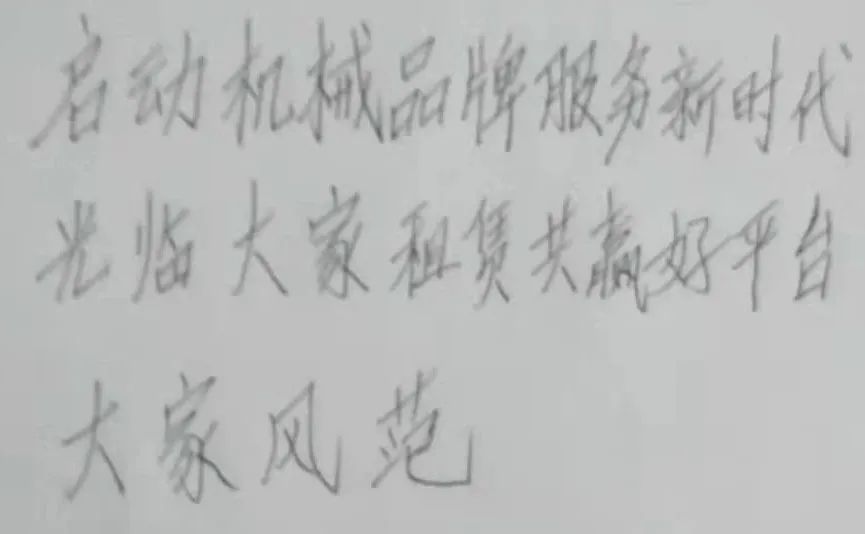 启动机械品牌服务新时代
光临大家租赁共赢好平台
大家风范